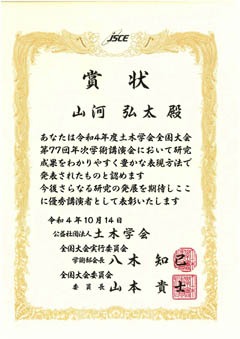 JSCE
賞状
山河 弘太 殿
あなたは令和4年度土木学会全国大会
第77回年次学術講演会において研究
成果をわかりやすく豊かな表現方法で
発表されたものと認めます
今後さらなる研究の発展を期待しここ
に優秀講演者として表彰いたします
令和4年10月14日
公益社団法人 土木学会
全国大会実行委員会
学術部会長 八木 知己
全国大会委員会
委員長 山本 貴士